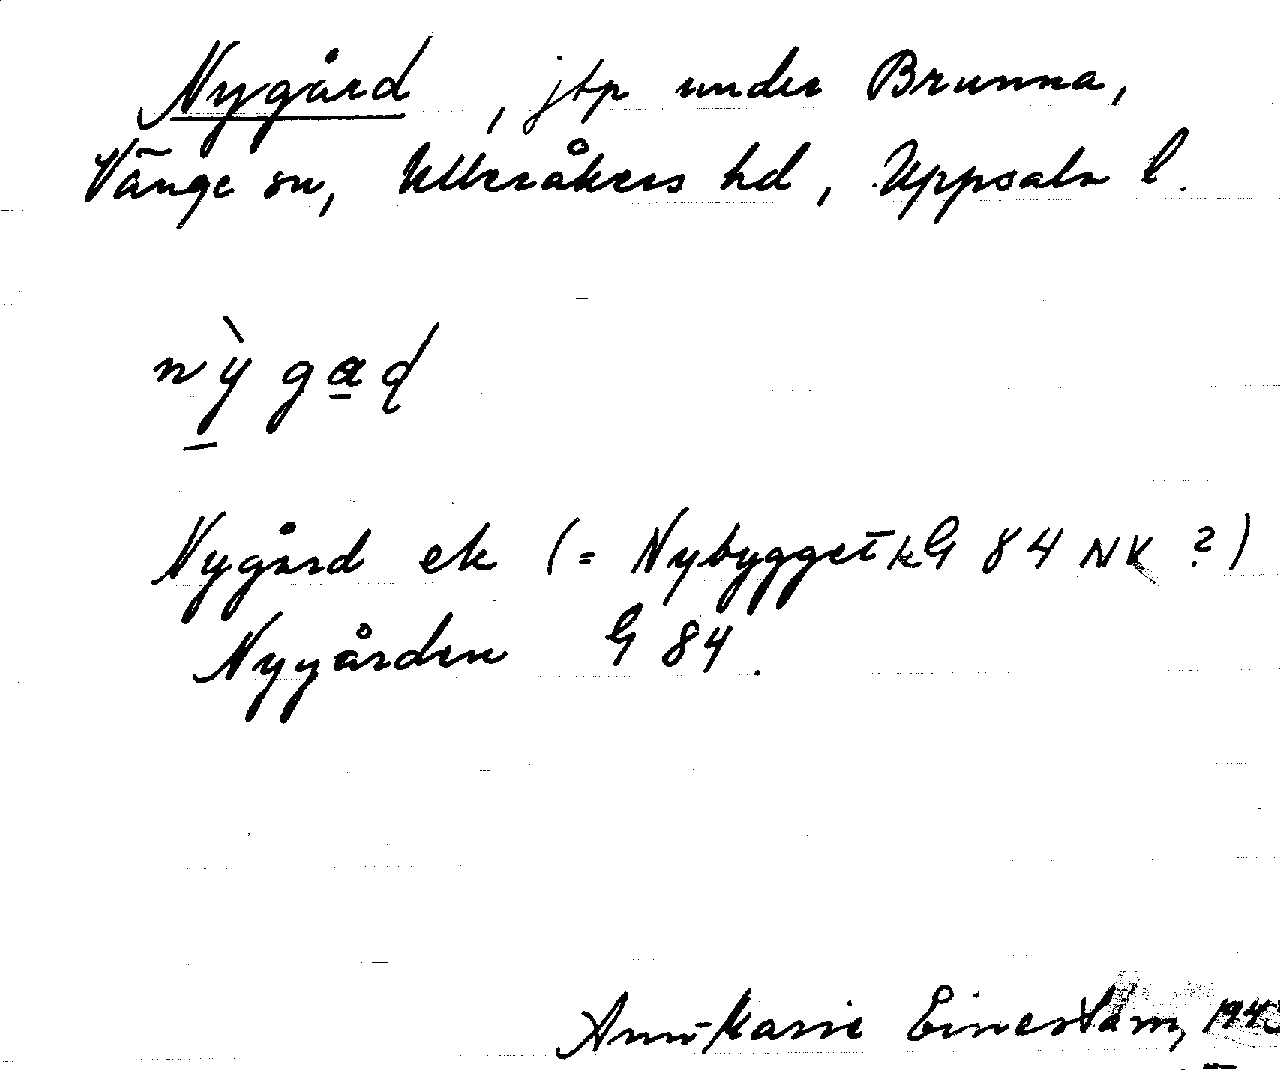 Nygård, jtp under Brunna,
Vänge sn, Ulleråkers hd, Uppsala l.
nỳgaḍ
Nygård ek (= Nybygget kG 84 NK ?)
Nygården G 84.
Ann-Marie Einerstam,